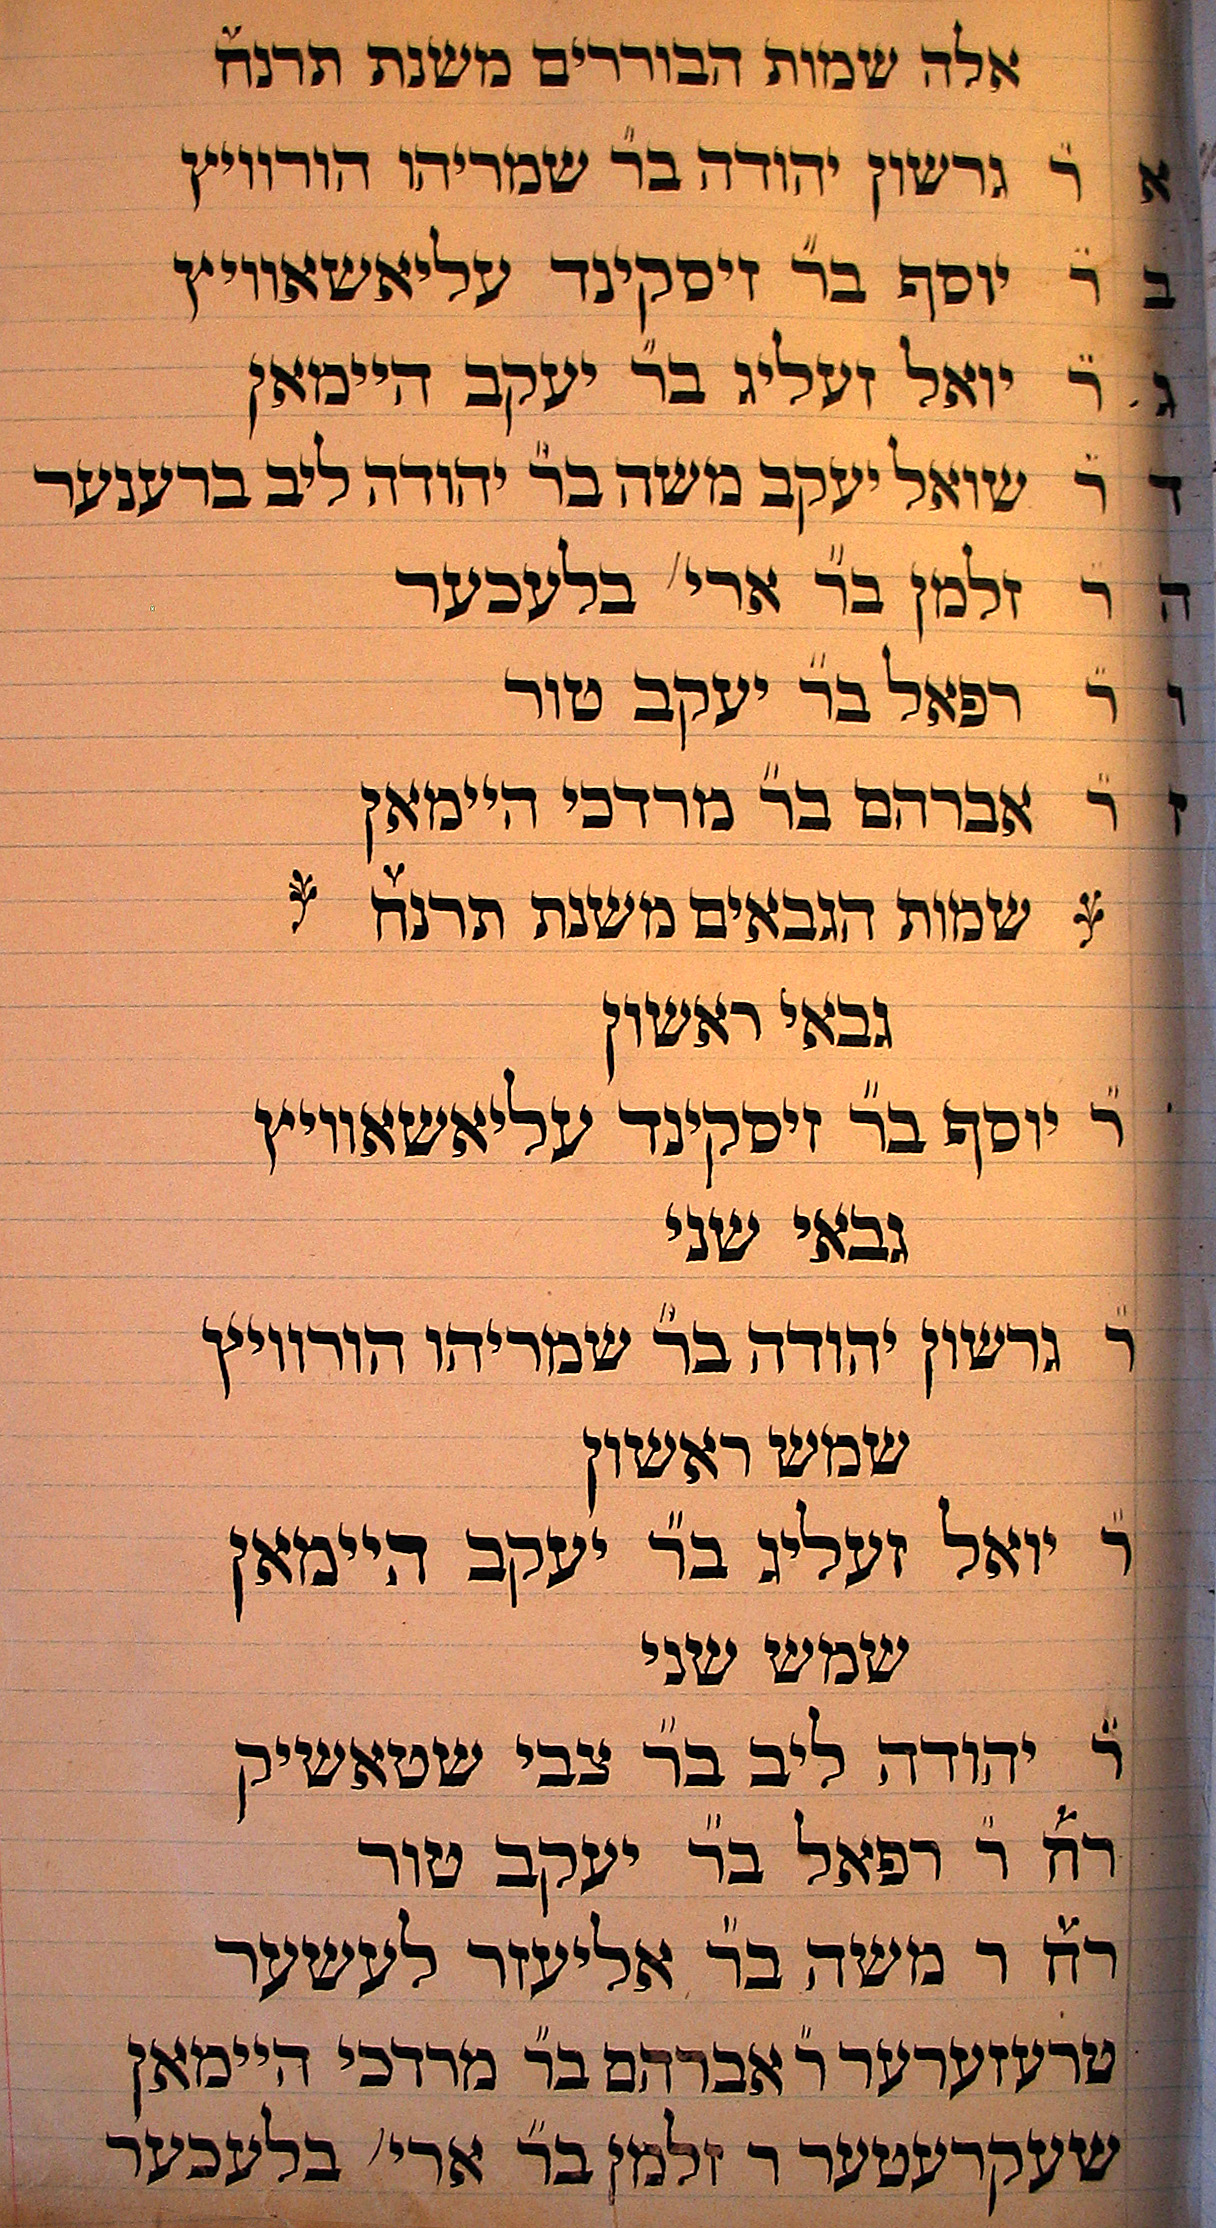 אלה שמות הבוררים משנת תרנח
א ר״ גרשון יהודה בר״ שמריהו הורוויץ
ב ר״ יוסף בר״ זיסקינד עליאשאוויץ
ג ר״ יואל זעליג בר״ יעקב היימאן
ד ר״ שואל יעקב משה בר״ יהודה ליב ברענער
ה ר״ זלמן בר״ ארי׳ בלעכער
ו ר״ רפאל בר״ יעקב טור
ז ר״ אברהם בר״ מרדכי היימאן
שמות הגבאים משנת תרנח
גבאי ראשון
ר״ יוסף בר״ זיסקינד עליאשאוויץ
גבאי שני
ר״ גרשון יהודה בר״ שמריהו הורוויץ
שמש ראשון
ר״ יואל זעליג בר״ יעקב היימאן
שמש שני
ר״ יהודה ליב בר״ צבי שטאשיק
רח ר״ רפאל בר״ יעקב טור
רח ר משה בר״ אליעזר לעשער
טרעזערער ר״ אברהם בר״ מרדכי היימאן
שעקרעטער ר זלמן בר״ ארי׳ בלעכער